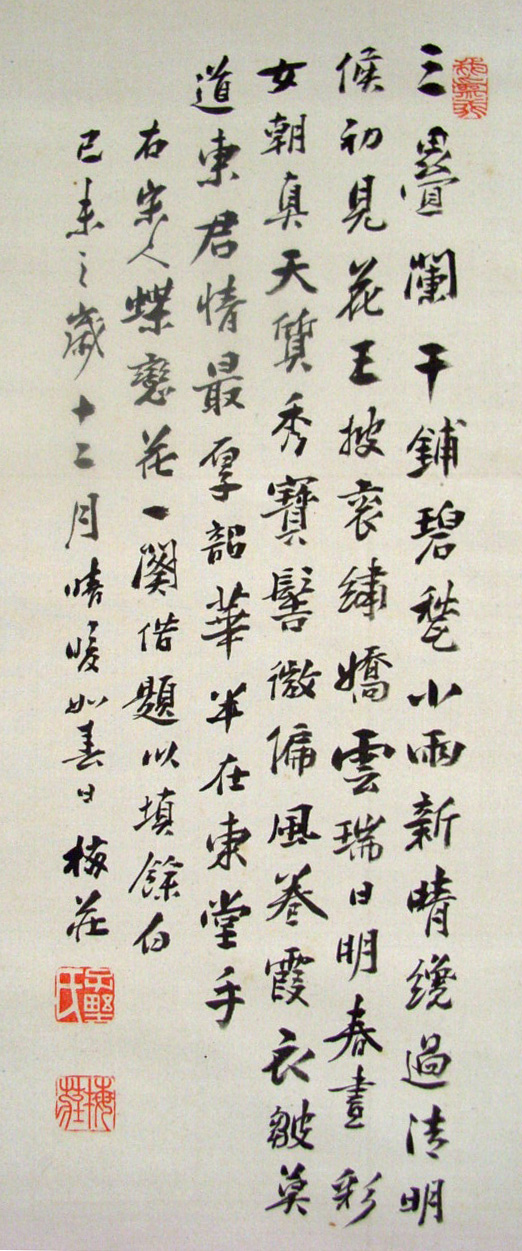 三疊欄干鋪碧甃小雨新晴纔過清明
候初見花王披衮繡嬌雲瑞日明春晝彩
女朝真天質秀寶髻微偏風卷霞衣皺莫
道東君情最厚韶華半在東堂手
右宋人蝶戀花一闋借題以填餘白
己未之歲十二月晴暖如春日 梅莊
梅莊